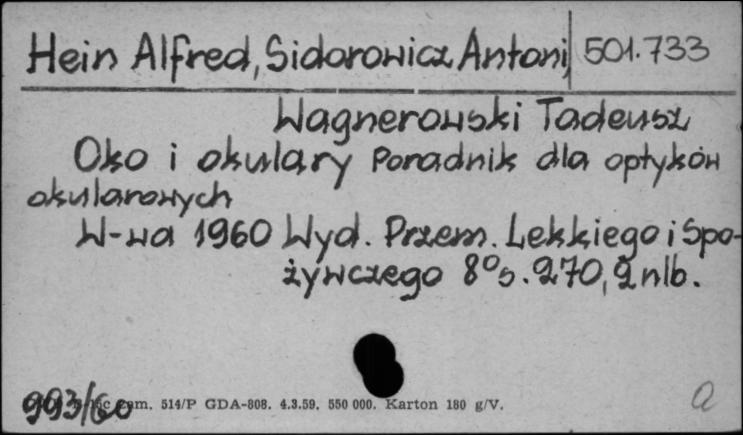 Hein Alfred, Sidorowicz Antoni, 501.733
Wagnerowski Tadeusz
Oko i okulary Poradnik dla optyków
okularowych
W-wa 1960 Wyd. Przem. Lekkiego i Spo-
żywczego 8° s. 270, 2 nlb.
993/60 zam. 514/P GDA-808. 4.3.59. 550 000. Karton 180 g/V.
a